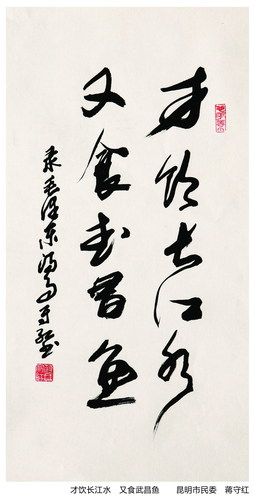 才饮长江水
又食武昌鱼
录毛泽东词句守红
才饮长江水 又食武昌鱼 昆明市民委 蒋守红